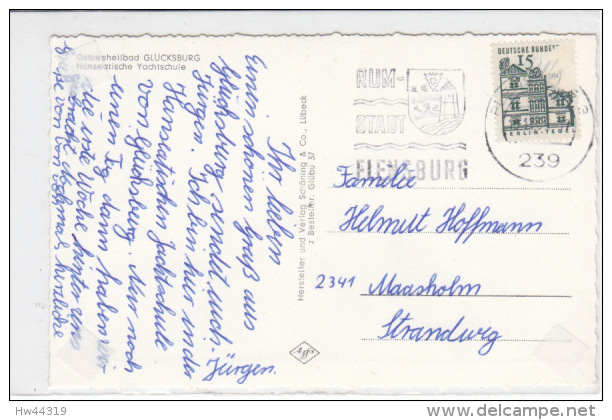 Ostseeheilbad GLÜCKSBURG
Hanseatische Yachtschule
Ihr lieben
einen schönen Gruß aus
Glücksburg sendet euch
Jürgen. Ich bin hier in der
Hanseatischen Jachtschule
von Glücksburg. Nur noch
einen Tag dann haben wir
die eine Woche hinter uns
gebracht. Nochmal herzliche
Grüße von
Jürgen.
Hersteller und Verlag Schöning & Co., Lübeck
z Bestellnr. Glübu 37
Agfa
RUM-
STADT
FLENSBURG
DEUTSCHE BUNDES
15
BERLIN-TEGEL
239
Familie
Helmut Hoffmann
2341 Maasholm
Strandweg
Hw44319
www.delcampe.net